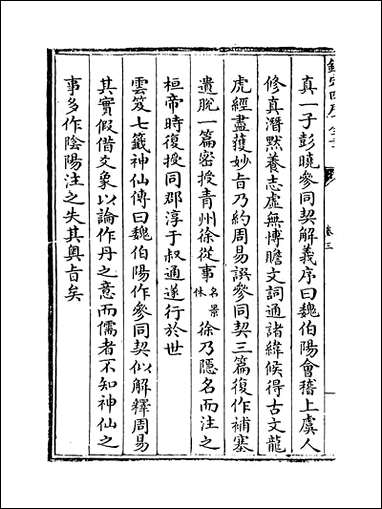 欽定四庫全書
卷三
真一子彭曉參同契解義序曰魏伯陽會稽上虞人
修真潛黙養志虛無博瞻文詞通諸緯候得古文龍
虎經盡獲妙㫖乃約周易譔參同契三篇復作補塞
遺脱一篇密授青州徐從事名景休徐乃隱名而注之
桓帝時復授同郡淳于叔通遂行於世
雲笈七籤神仙傳曰魏伯陽作參同契似解釋周易
其實假借爻象以論作丹之意而儒者不知神仙之
事多作陰陽注之失其奥㫖矣